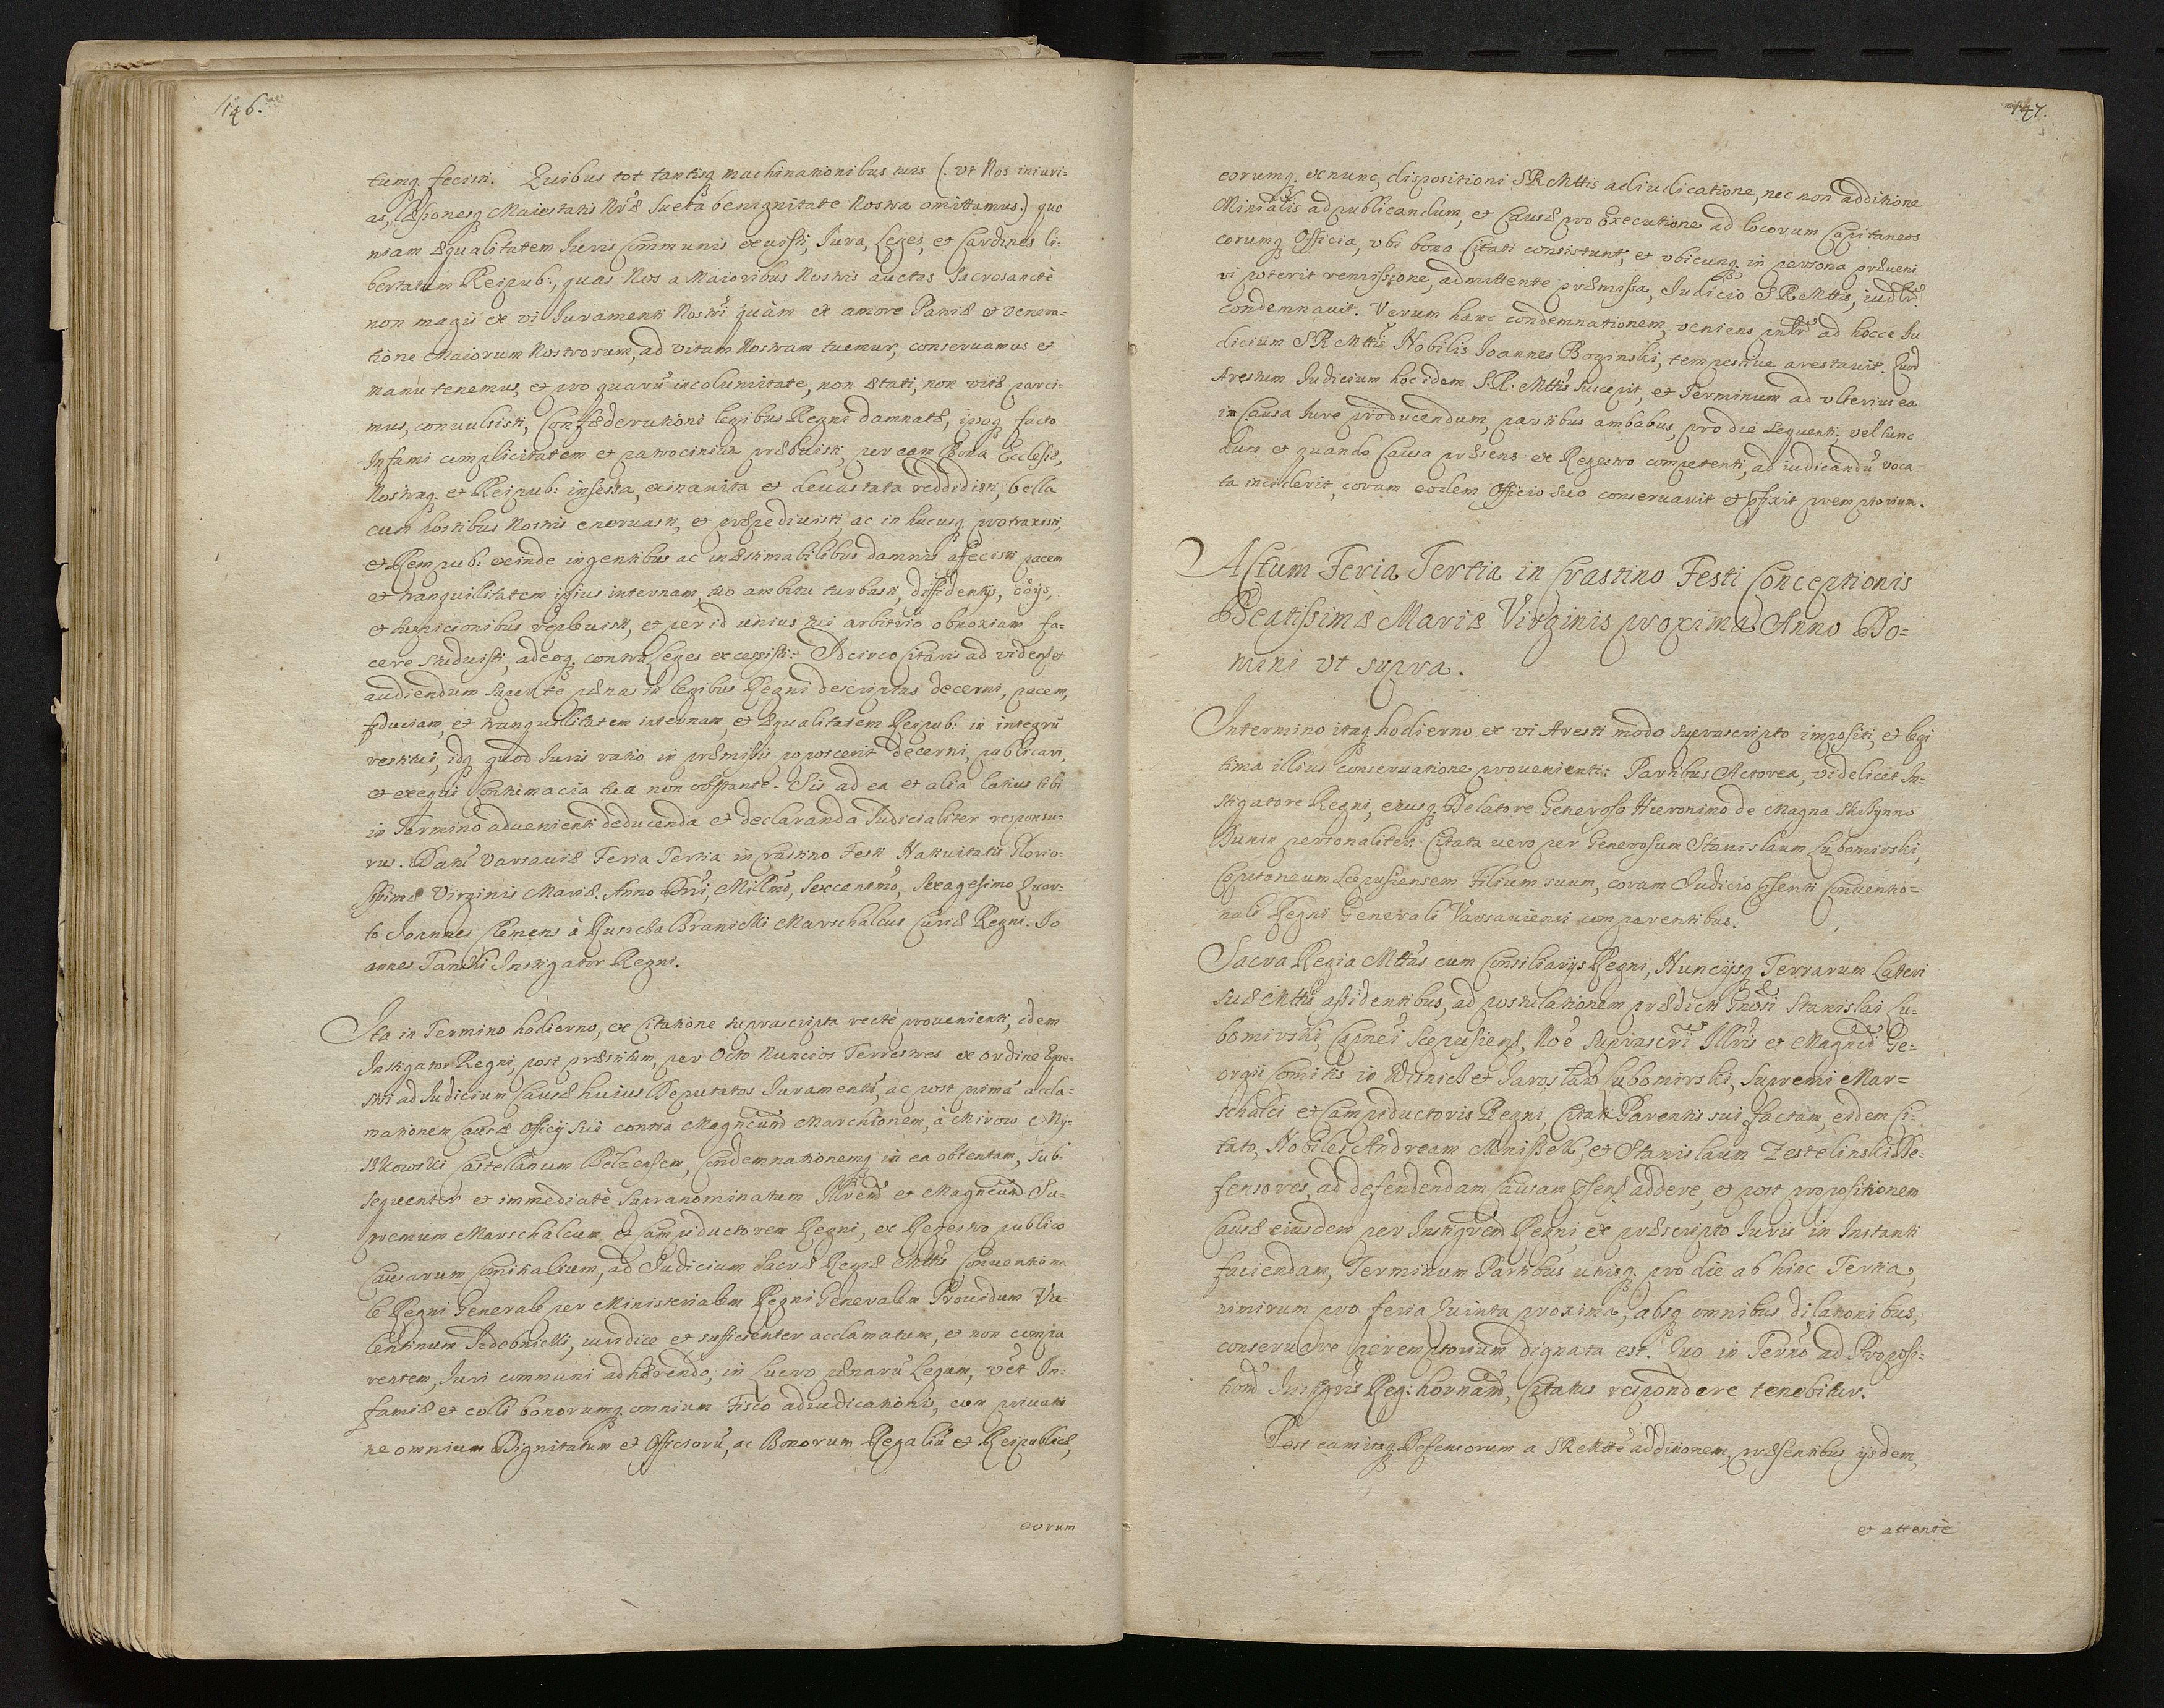 146.
tumq. fecisti. Quibus tot tantisq machinationibus tuis (. vt Nos iniuri-
as, læsionesq Maiestatis Nræ sueta benignitate Nostra omittamus.) quo
niam æqualitatem Iuris Communis exuisti, Iura, Leges, et Cardines li-
bertatum Reipub:, quas Nos a Maioribus Nostris auctas Sacrosanctè
non magis ex vi Iuramenti Nostri quàm ex amore Patriæ et venera-
tione Maiorum Nostrorum, ad vitam Nostram tuemur, conseruamus et
manu tenemus, et pro quarũ incolumitate, non ætati, non vitæ parci-
mus, conuulsisti, Confæderationi legibus Regni damnatæ, ipsoq facto
Infami complicitatem et patrocinium præbuisti, per eam Bona Ecclesiæ,
Nostraq. et Reipub: infessa, exinanita et deuastata reddidisti, bella
cum hostibus Nostris eneruasti, et præpediuisti, ac in hucusq. protraxisti,
et Rempub: exinde ingentibus ac inæstimabilibus damnis affecisti pacem
et tranquillitatem ipsius internam, tuo ambitu turbasti, diffidentijs, odijs,
et suspicionibus repleuisti, et per id unius tui arbitrio obnoxiam fa-
cere studuisti, adeoq. contra Leges excessisti: Idcirco Citaris ad videnđ et
audiendum super te pænas in legibus Regni descriptas decerni, pacem,
fiduciam, et tranquillitatem internam, et æqualitatem Reipub: in integrũ
restitui, idq quod Iuris ratio in præmissis poposcerit decerni, publicari,
et exequi Contumacia tua non obstante. Sis ad ea et alia latius tibi
in Termino aduenienti deducenda et declaranda Iudicialiter responsu-
rus. Datũ Varsauiæ Feria Tertia in Crastino Festi Natiuitatis Glorio-
sissimæ Virginis Mariæ. Anno Dni, Millmo, Sexcentmo, Sexagesimo Quar-
to Joannes Clemens à Ruscza Branicki Marschalcus Curiæ Regni. Jo
annes Tanski Instigator Regni.
Ita in Termino hodierno, ex Citatione suprascripta rectè prouenienti, idem
Instigator Regni, post præstitum, per Octo Nuncios Terrestres ex ordine Eque-
stri ad Iudicium Causæ huius Deputatos Iuramentũ, ac post primã accla-
mationem Causæ Officij sui contra Magncum Marchionem, à Mirow My-
szkowski Castellanum Belcensem, Condemnationemq in ea obtentam, sub-
sequenter et immediatè Supranominatum Illrem et Magncum Su-
premum Marschalcum et Campiductorem Regni, ex Regestro publico
Causarum Comitialium, ad Iudicium Sacræ Regiæ Mttis Conuentiona
le Regni Generale per Ministerialem Regni Generalem Prouidum Va-
lentinum Zdebnicki, iuridice et sufficienter acclamatum, et non compa
rentem, Iuri communi adhærendo, in Lucro pænarũ Legum, vtt In-
famiæ et colli bonorumq. omnium Fisco adiudicationis, cum priuatio
ne omnium Dignitatum et Officiorũ, ac Bonorum Regaliũ et Reipublicæ,
eorum
147.
eorumq. exnunc, dispositioni SRMttis adiudicatione, nec non additione
Minialis ad publicandum, et Causæ pro Executione ad locorum Capitaneos
eorumq Officia, vbi bona Citati consistunt, et vbicunq. in persona præueni
ri poterit remissione, admittente præmissa, Iudicio SRMttis, iudltr.
condemnauit. Verum hanc condemnationem, veniens pntr ad hocce Iu
dicium SRMttis Nobilis Ioannes Bozinski, tempestiue arestauit. Quod
Arestum Iudicium hoc idem S.R. Mttis suscepit, et Terminum ad vlterius ea
in Causa Iure producendum, partibus ambabus, pro die sequenti, vel tunc
dum et quando Causa præsens ex Regestro competenti, ad iudicandũ voca-
ta inciderit, coram eodem Officio suo conseruauit et pfixit premptorium.
Actum Feria Tertia in Crastino Festi Conceptionis
Beatissimæ Mariæ Virginis proxima Anno Do-
mini vt supra.
In termino itaq hodierno ex vi Aresti modo suprascripto impositi, et legi
tima illius conseruatione prouenienti: Partibus Actorea, videlicet In-
stigatore Regni, eiusq Delatore Generoso Hieronimo de Magna Skrzynno
Dunin personaliter: Citata uero per Generosum Stanislaum Lubomirski,
Capitaneum Scepusiensem Filium suum, coram Iudicio psenti Conuentio-
nali Regni Generali Varsauiensi comparentibus.
Sacra Regia Mttas cum Consiliarijs Regni, Nuncijsq Terrarum Lateri
suæ Mttis assidentibus, ad postulationem prædicti Gnosi Stanislai Lu-
bomirski, Capnei Scepusienś, Noe suprascri Illris et Magnci Ge-
orgii Comitis in Wisnicz et Jaroslaw Lubomirski, Supremi Mar-
schalci et Campiductoris Regni, Citati Parentis sui factam, eidem Ci-
tato, Nobiles Andream Mnissek, et Stanislaum Zestelinski De-
fensores, ad defendendam Causam psenś addere, et post propositionem
Causæ eiusdem per Instigrem Regni, ex præscripto Iuris in Instanti
faciendam, Terminum Partibus utrisq, pro die ab hinc Tertia,
nimirum pro feria Quinta proxima, absq omnibus dilationibus,
conseruare peremptorium dignata est. Quo in Termo ad Proposi-
tionem Instigris Reg: hornam, Citatus respondere tenebitur.
Post eam itaq Defensorum a SRMtte additionem, præsentibus ijsdem,
et attente